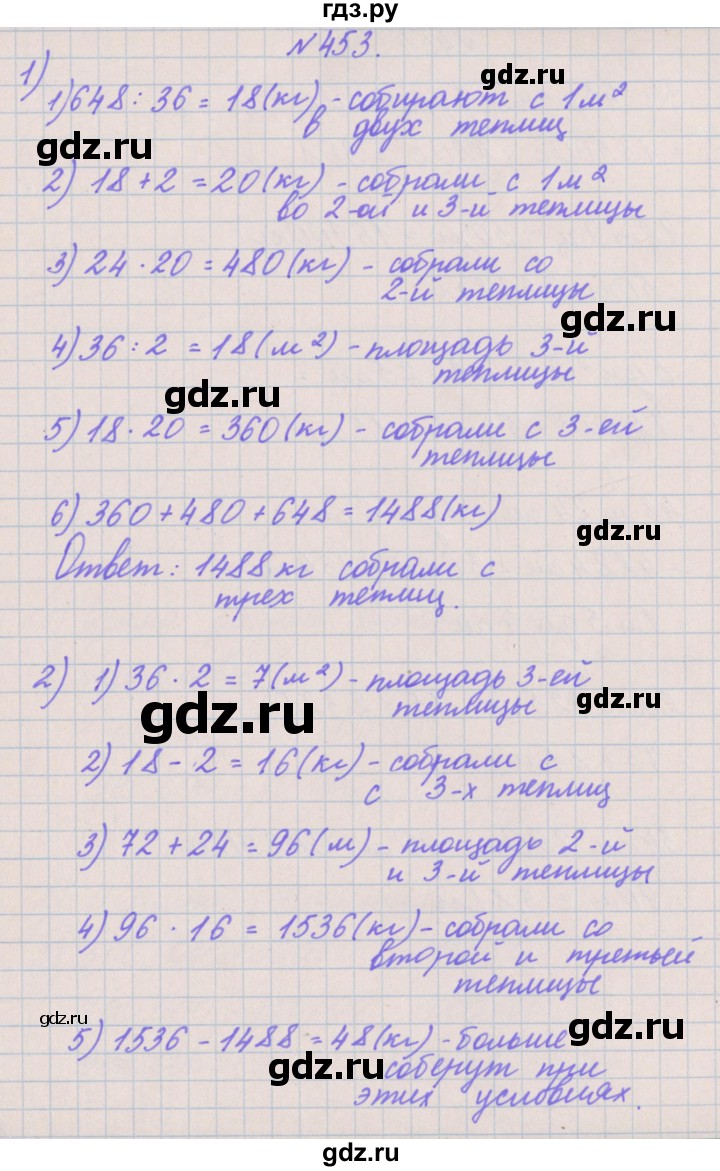 гдз.ру
№453.
1)
1) 648 : 36 = 18 (кг) - собирают с 1 м²
в двух теплиц
gdz.ru
gdz.ru
2) 18 + 2 = 20 (кг) - собрали с 1 м²
во 2-ой и 3-й теплицы
3) 24 · 20 = 480 (кг) - собрали со
2-й теплицы
gdz.ru
4) 36 : 2 = 18 (м²) - площадь 3-й
теплицы
gdz.ru
5) 18 · 20 = 360 (кг) - собрали с 3-ей
теплицы
6) 360 + 480 + 648 = 1488 (кг)
gdz.ru
Ответ: 1488 кг собрали с
трех теплиц.
2) 1) 36 · 2 = 7 (м²) - площадь 3-ей
теплицы
gdz.ru
gdz.ru
2) 18 - 2 = 16 (кг) - собрали с
с 3-х теплиц
3) 72 + 24 = 96 (м) - площадь 2-й
и 3-й теплицы
4) 96 · 16 = 1536 (кг) - собрали со
второй и третьей
теплицы
gdz.ru
5) 1536 - 1488 = 48 (кг) - больше
gdz.ru
соберут при
gdz.ru
этих условиях.
gdz.ru